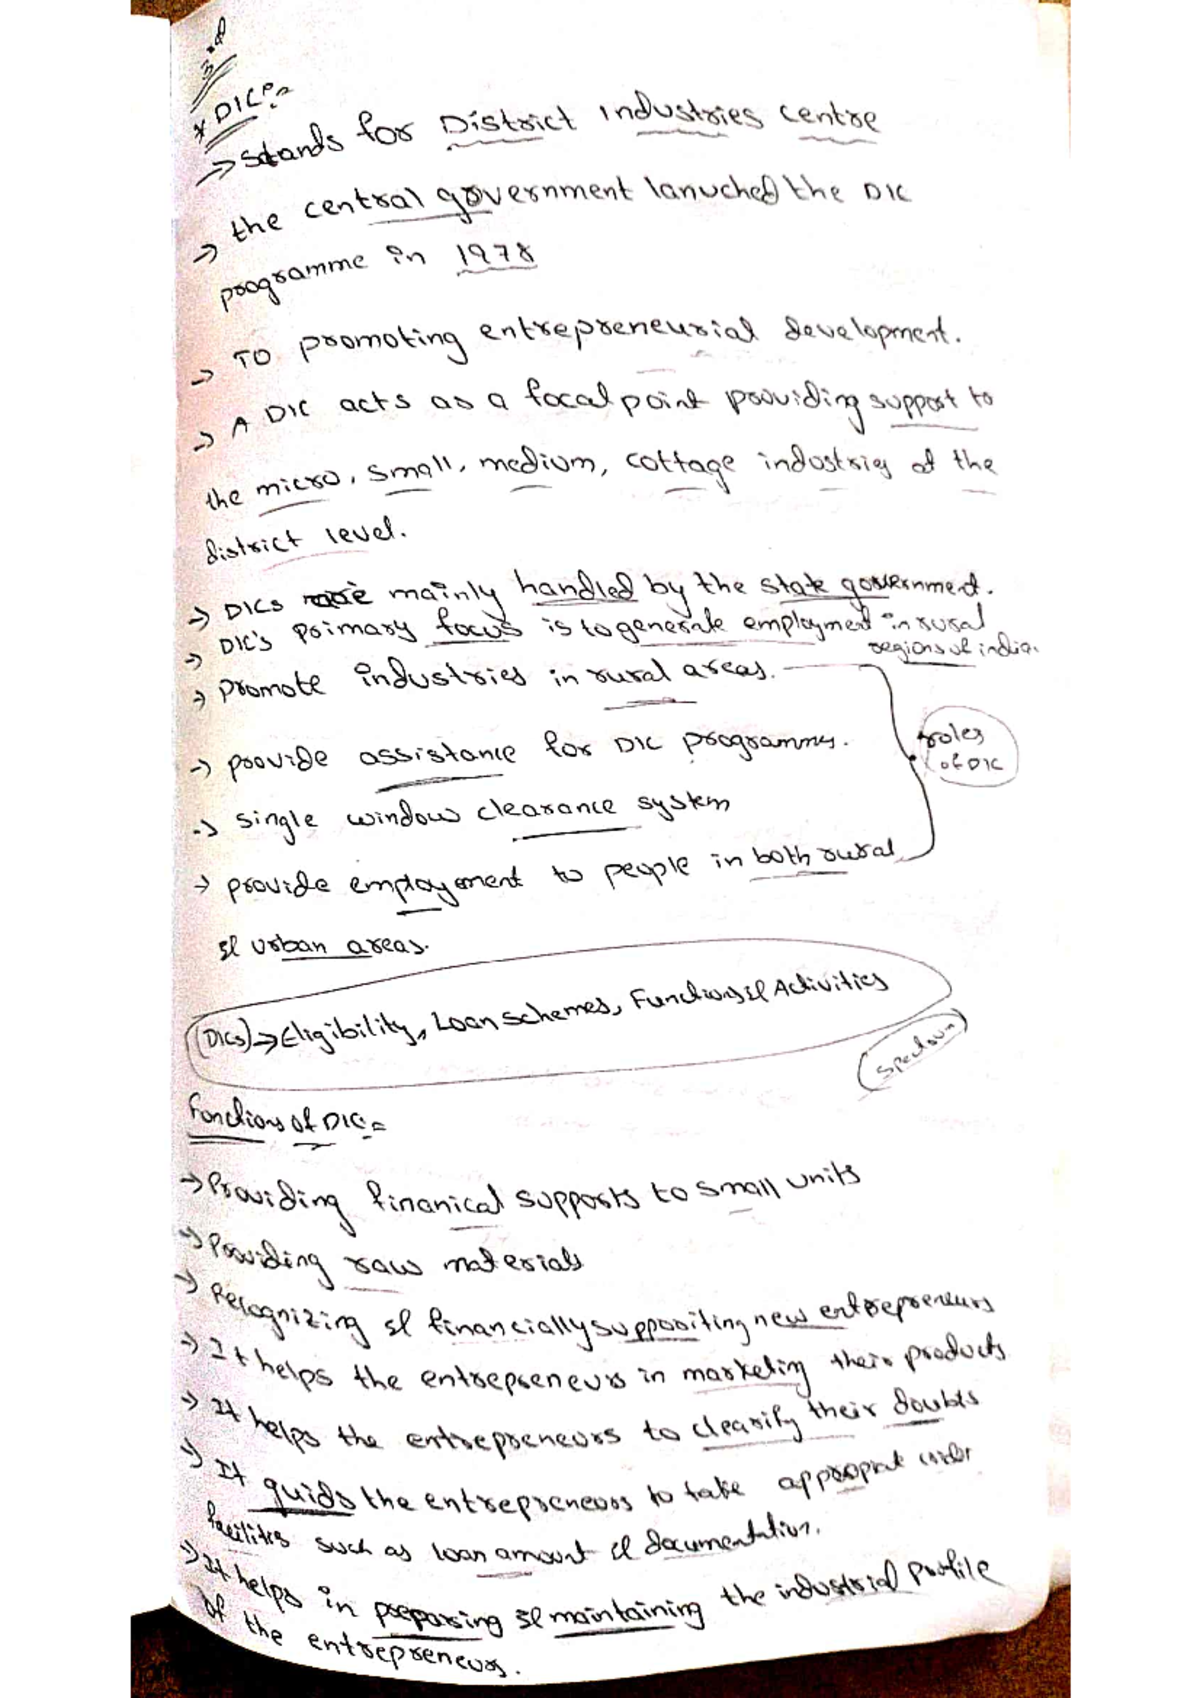 3rd
* DIC:-
→ Stands for District Industries Centre
→ the central government lanuched the DIC
programme in 1978
→ To promoting entrepreneurial development.
→ A DIC acts as a focal point providing support to
the micro, small, medium, cottage industries at the
district level.
→ DICs are mainly handled by the state government.
→ DIC's primary focus is to generate employment in rural
regions of india.
→ promote industries in rural areas.
→ provide assistance for DIC programmes.
roles
of DIC
→ single window clearance system
→ provide employement to people in both rural
& urban areas.
(DICs) → Eligibility, Loan schemes, Functions & Activities
Spectrum
Functions of DIC:-
→ Providing finanical supports to small units
→ Providing raw materials
→ Recognizing & financially suppoiting new entrepreneurs
→ It helps the entrepreneurs in marketing their products
→ It helps the entrepreneurs to clearify their doubts
→ It guids the entrepreneurs to take appropriate
facilities such as loan amount & documentation.
→ It helps in preparing & maintaining the industrial profile
of the entrepreneurs.